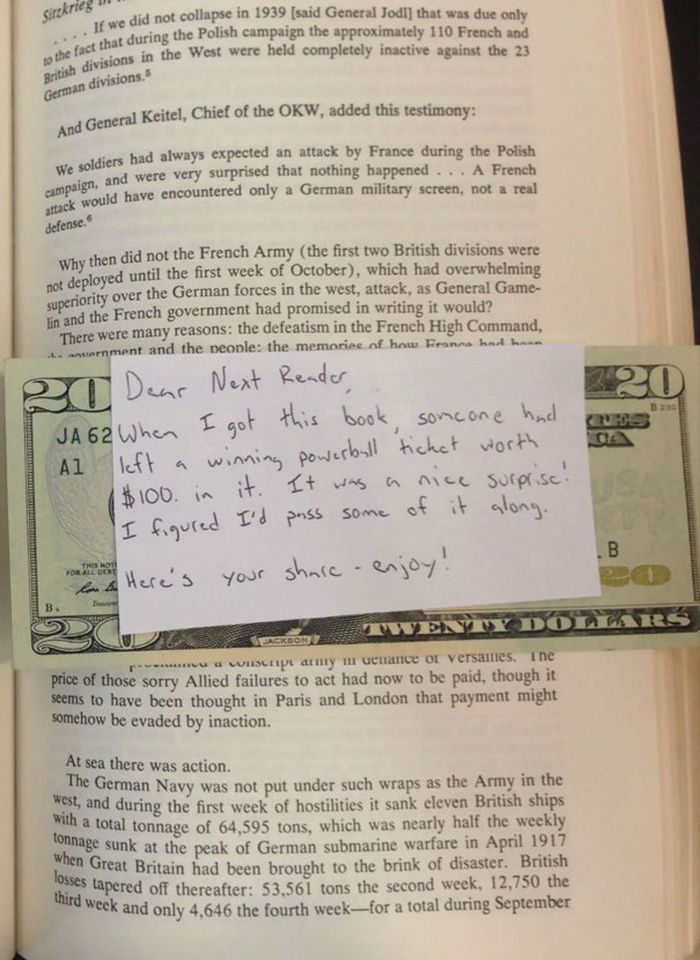 Sitzkrieg
. . . . If we did not collapse in 1939 [said General Jodl] that was due only
to the fact that during the Polish campaign the approximately 110 French and
British divisions in the West were held completely inactive against the 23
German divisions.5
And General Keitel, Chief of the OKW, added this testimony:
We soldiers had always expected an attack by France during the Polish
campaign, and were very surprised that nothing happened . . . A French
attack would have encountered only a German military screen, not a real
defense.6
Why then did not the French Army (the first two British divisions were
not deployed until the first week of October), which had overwhelming
superiority over the German forces in the west, attack, as General Game-
lin and the French government had promised in writing it would?
There were many reasons: the defeatism in the French High Command,
the government and the people; the memories of how France had been
20
20
JA 62
A1
B 230
Dear Next Reader,
When I got this book, someone had
left a winning powerball ticket worth
$100. in it. It was a nice surprise!
I figured I'd pass some of it along.
Here's your share - enjoy!
THIS NOTE
FOR ALL DEBT
B
20
20
JACKSON
TWENTY DOLLARS
proclaimed a conscript army in defiance of Versailles. The
price of those sorry Allied failures to act had now to be paid, though it
seems to have been thought in Paris and London that payment might
somehow be evaded by inaction.
At sea there was action.
The German Navy was not put under such wraps as the Army in the
west, and during the first week of hostilities it sank eleven British ships
with a total tonnage of 64,595 tons, which was nearly half the weekly
tonnage sunk at the peak of German submarine warfare in April 1917
when Great Britain had been brought to the brink of disaster. British
losses tapered off thereafter: 53,561 tons the second week, 12,750 the
third week and only 4,646 the fourth week—for a total during September